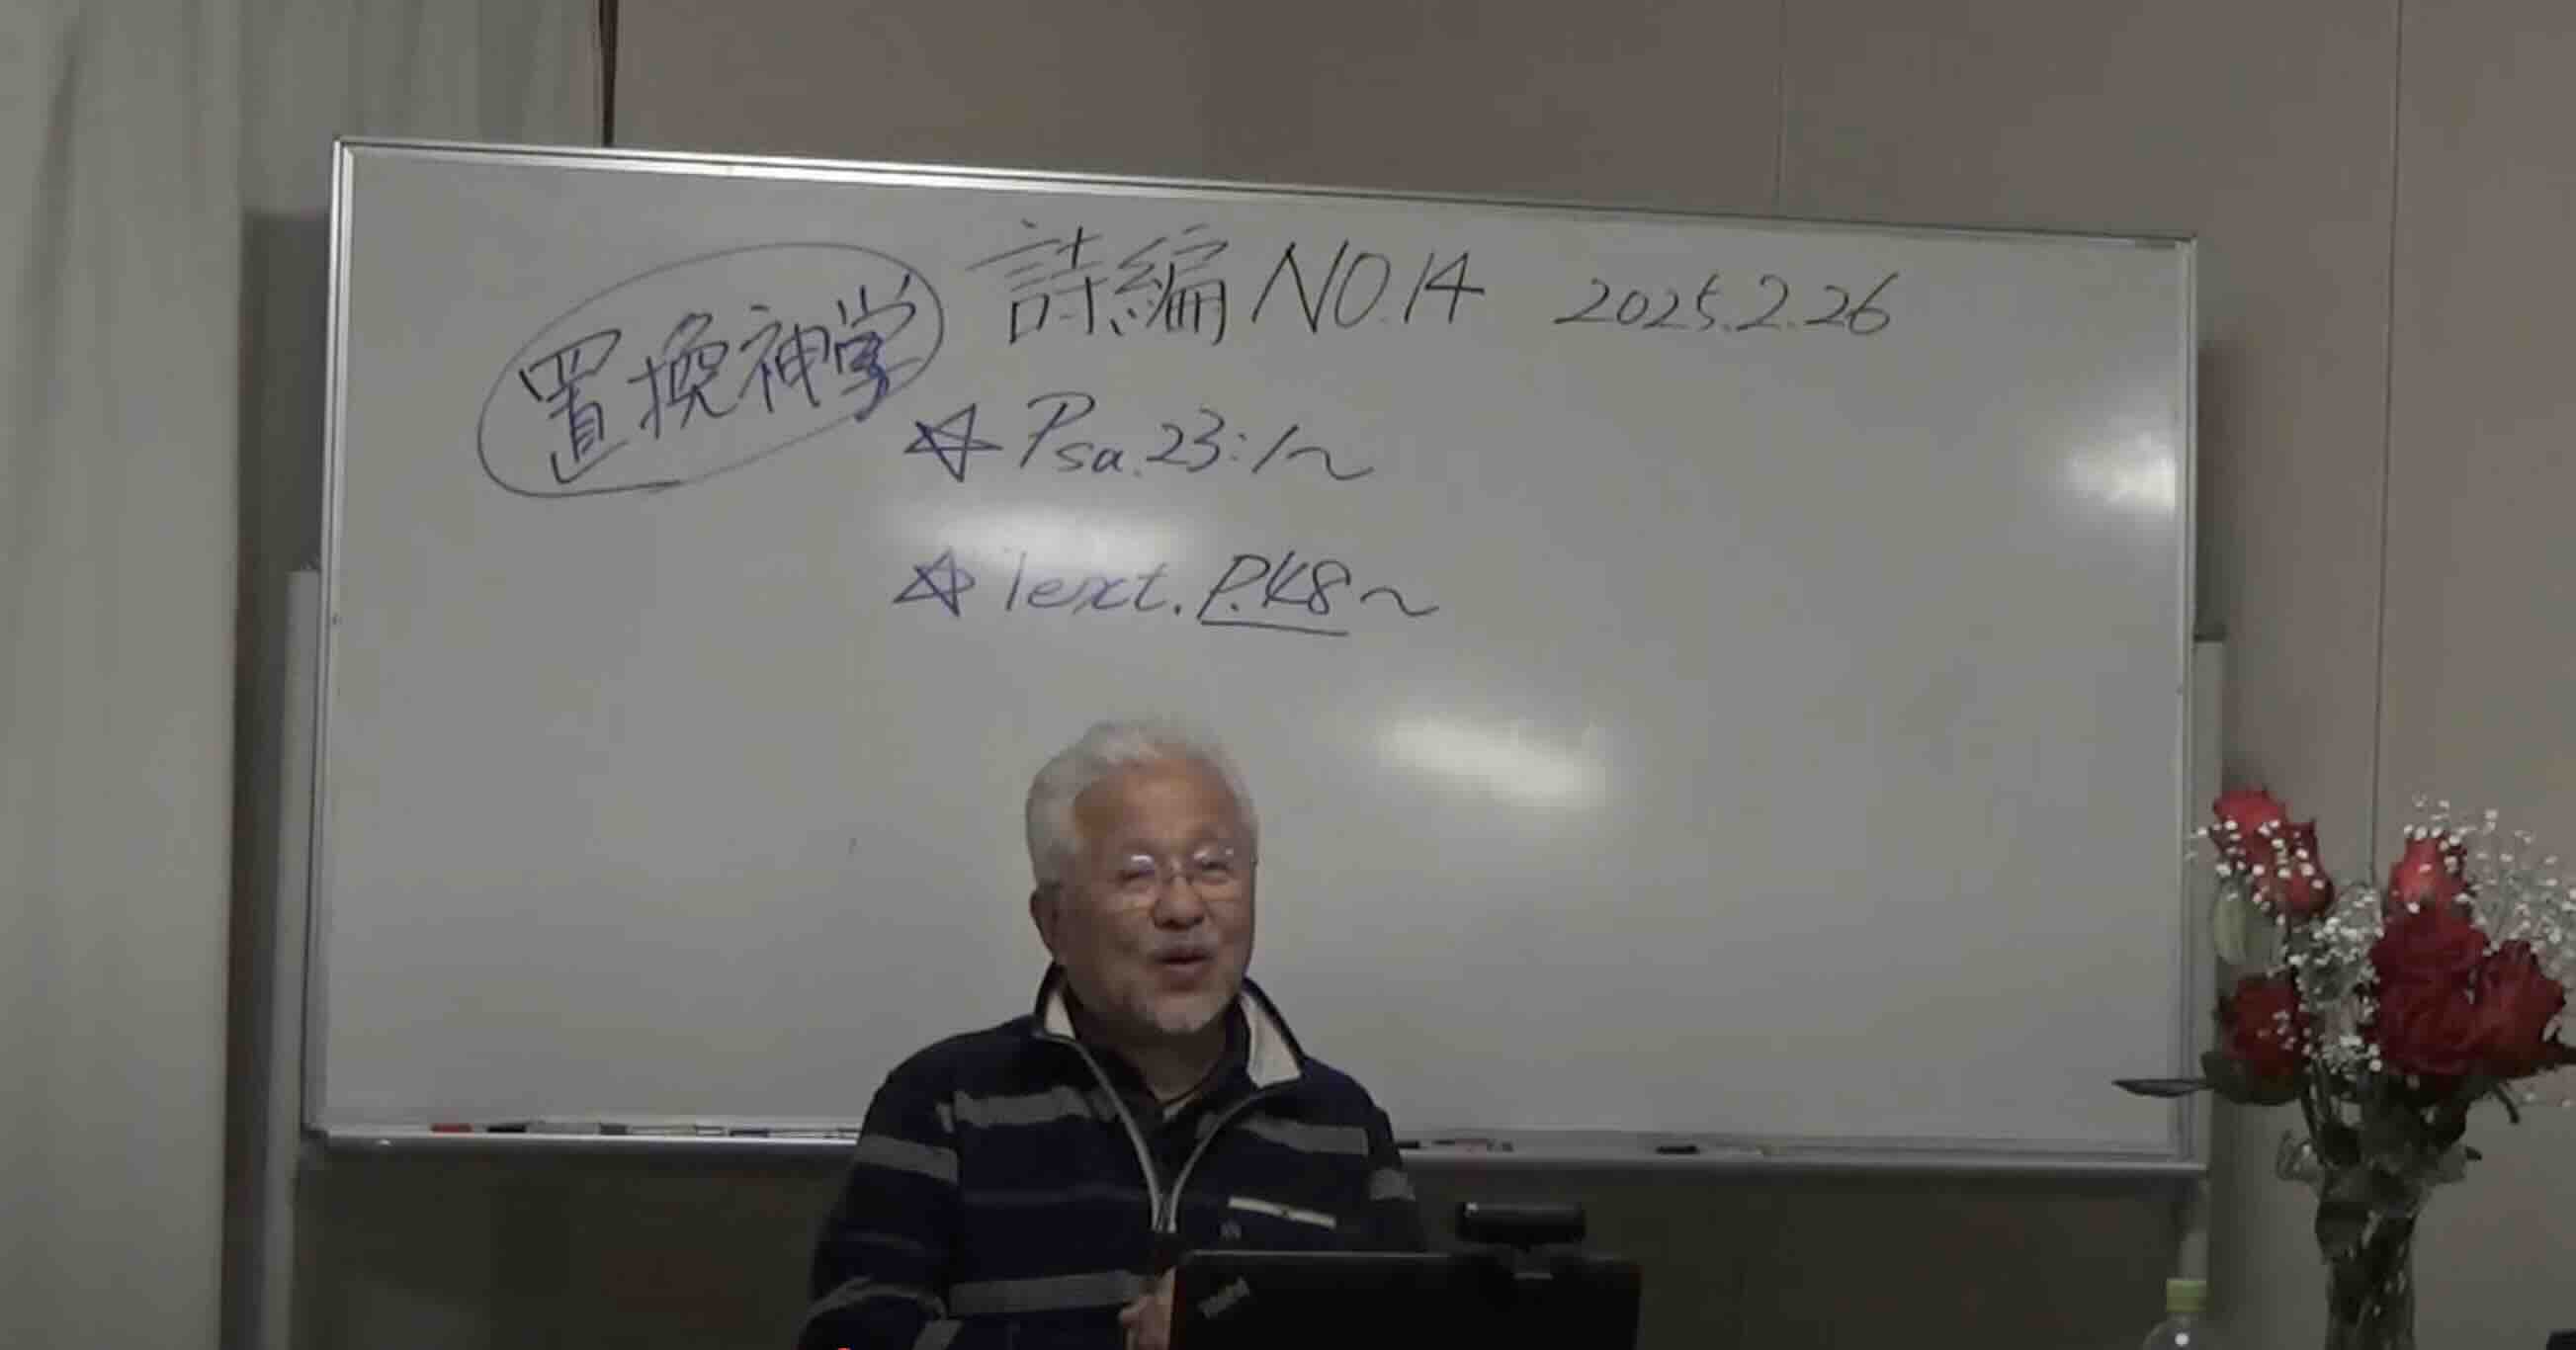 詩編 NO.14 2025.2.26
置換神学
☆ Psa.23:1〜
☆ Text. P.48〜
ThinkPad